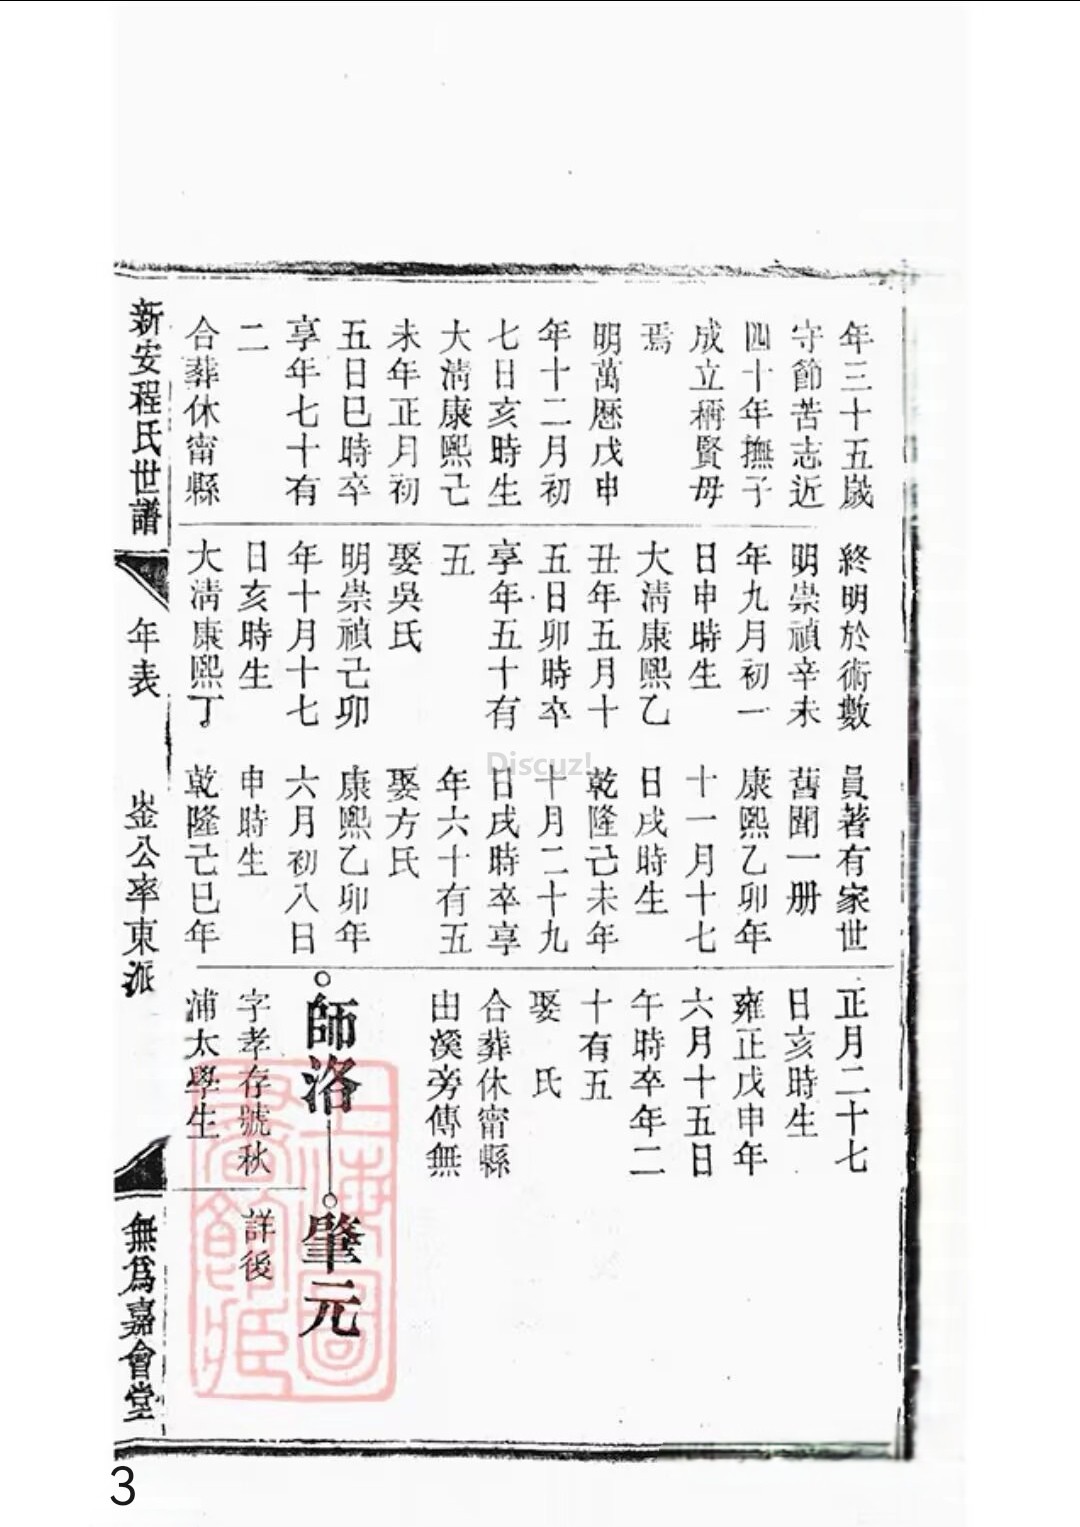 年三十五歲
守節苦志近
四十年撫子
成立稱賢母
焉
明萬歷戊申
年十二月初
七日亥時生
大清康熙己
未年正月初
五日巳時卒
享年七十有
二
合葬休甯縣
終明於術數
明崇禎辛未
年九月初一
日申時生
大清康熙乙
丑年五月十
五日卯時卒
享年五十有
五
娶吳氏
明崇禎己卯
年十月十七
日亥時生
大清康熙丁
員著有家世
舊聞一册
康熙乙卯年
十一月十七
日戌時生
乾隆己未年
十月二十九
日戌時卒享
年六十有五
娶方氏
康熙乙卯年
六月初八日
申時生
乾隆己巳年
正月二十七
日亥時生
雍正戊申年
六月十五日
午時卒年二
十有五
娶 氏
合葬休甯縣
由溪旁傳無
師洛
字孝存號秋
浦太學生
肇元
詳後
新安程氏世譜
年表
崟公率東派
無爲嘉會堂
上海圖
書館藏
Discuz!
3